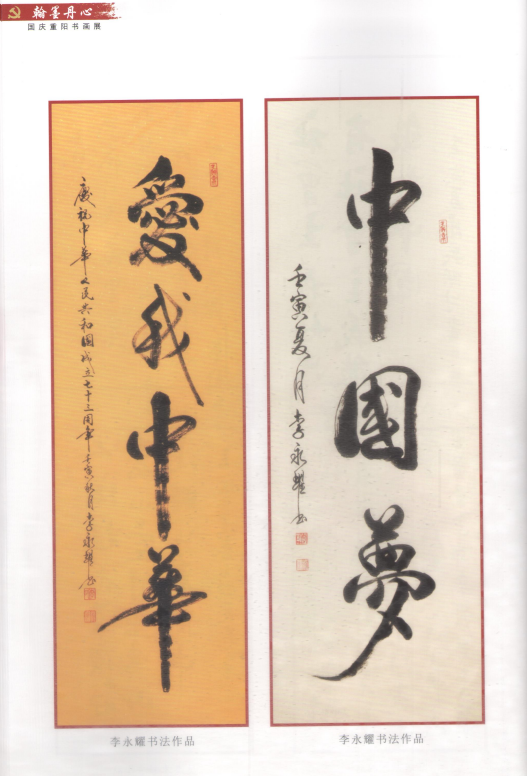 翰墨丹心
国庆重阳书画展
中國夢
壬寅夏月李永耀书
愛我中華
庆祝中华人民共和国成立七十三周年壬寅秋月李永耀书
李永耀书法作品
李永耀书法作品